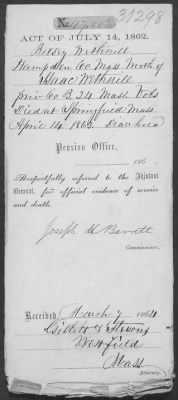 31298
No.
ACT OF JULY 14, 1862.
Betsey Wethrill
Hampden Co Mass Moth of
Isaac Wethrill
priv Co B. 24 Mass Vols
Died at Springfield Mass
April 14. 1863. Diarrhoea
Pension Office,
186
Respectfully referred to the Adjutant
General, for official evidence of service
and death.
Joseph H Barrett
Commissioner.
Received March 7 1864
Gillett & Stevens
Westfield
Mass
Attorney.